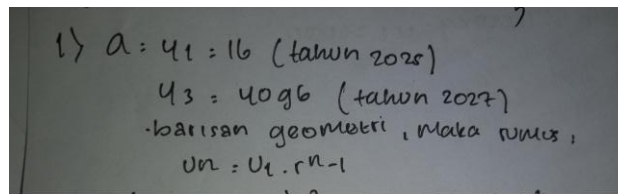 1) a = U1 = 16 (tahun 2025)
U3 = 4096 (tahun 2027)
·barisan geometri, Maka rumus,
Un = U1 . r^n-1